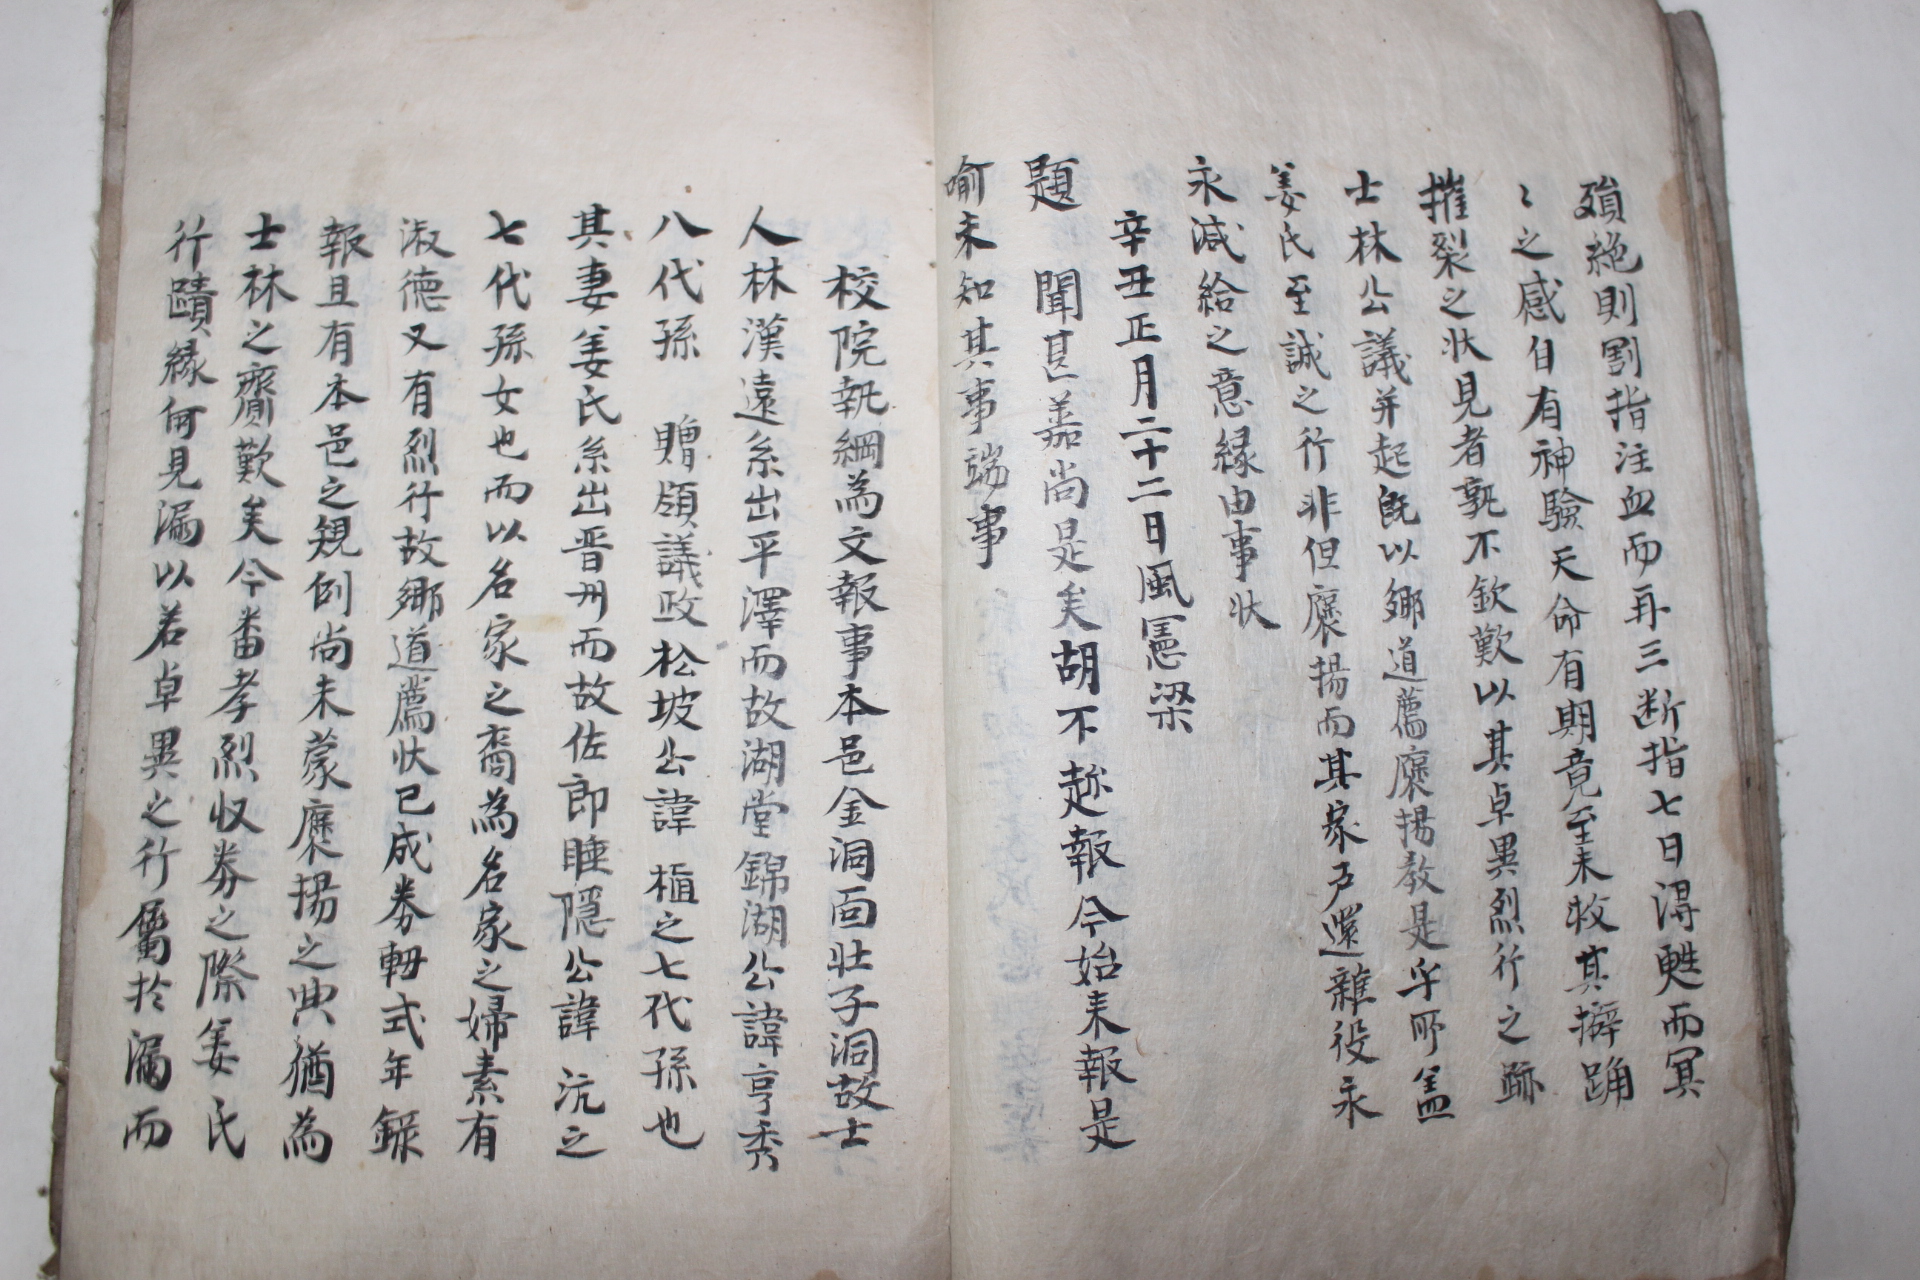 殞絶則割指注血而再三断指七日得甦而冥
〻之感自有神驗天命有期竟至未救其擗踊
摧裂之狀見者孰不欽歎以其卓異烈行之跡
士林公議并起旣以鄕道薦褒揚教是乎所盖
姜氏至誠之行非但褒揚而其家戶還雜役永
永減給之意縁由事狀
辛丑正月二十二日風憲梁
題　聞甚嘉尚是矣胡不趂報今始来報是
喻未知其事端事
校院執綱為文報事本邑金洞面壯子洞故士
人林漢遠系出平澤而故湖堂錦湖公諱亨秀
八代孫　贈領議政松坡公諱　植之七代孫也
其妻姜氏系出晋州而故佐郎睡隱公諱　沆之
七代孫女也而以名家之裔為名家之婦素有
淑德又有烈行故鄕道薦狀已成券軸式年錄
報且有本邑之規例尚未蒙褒揚之典猶為
士林之齎歎矣今番孝烈収券之際姜氏
行蹟縁何見漏以若卓異之行屬於漏而